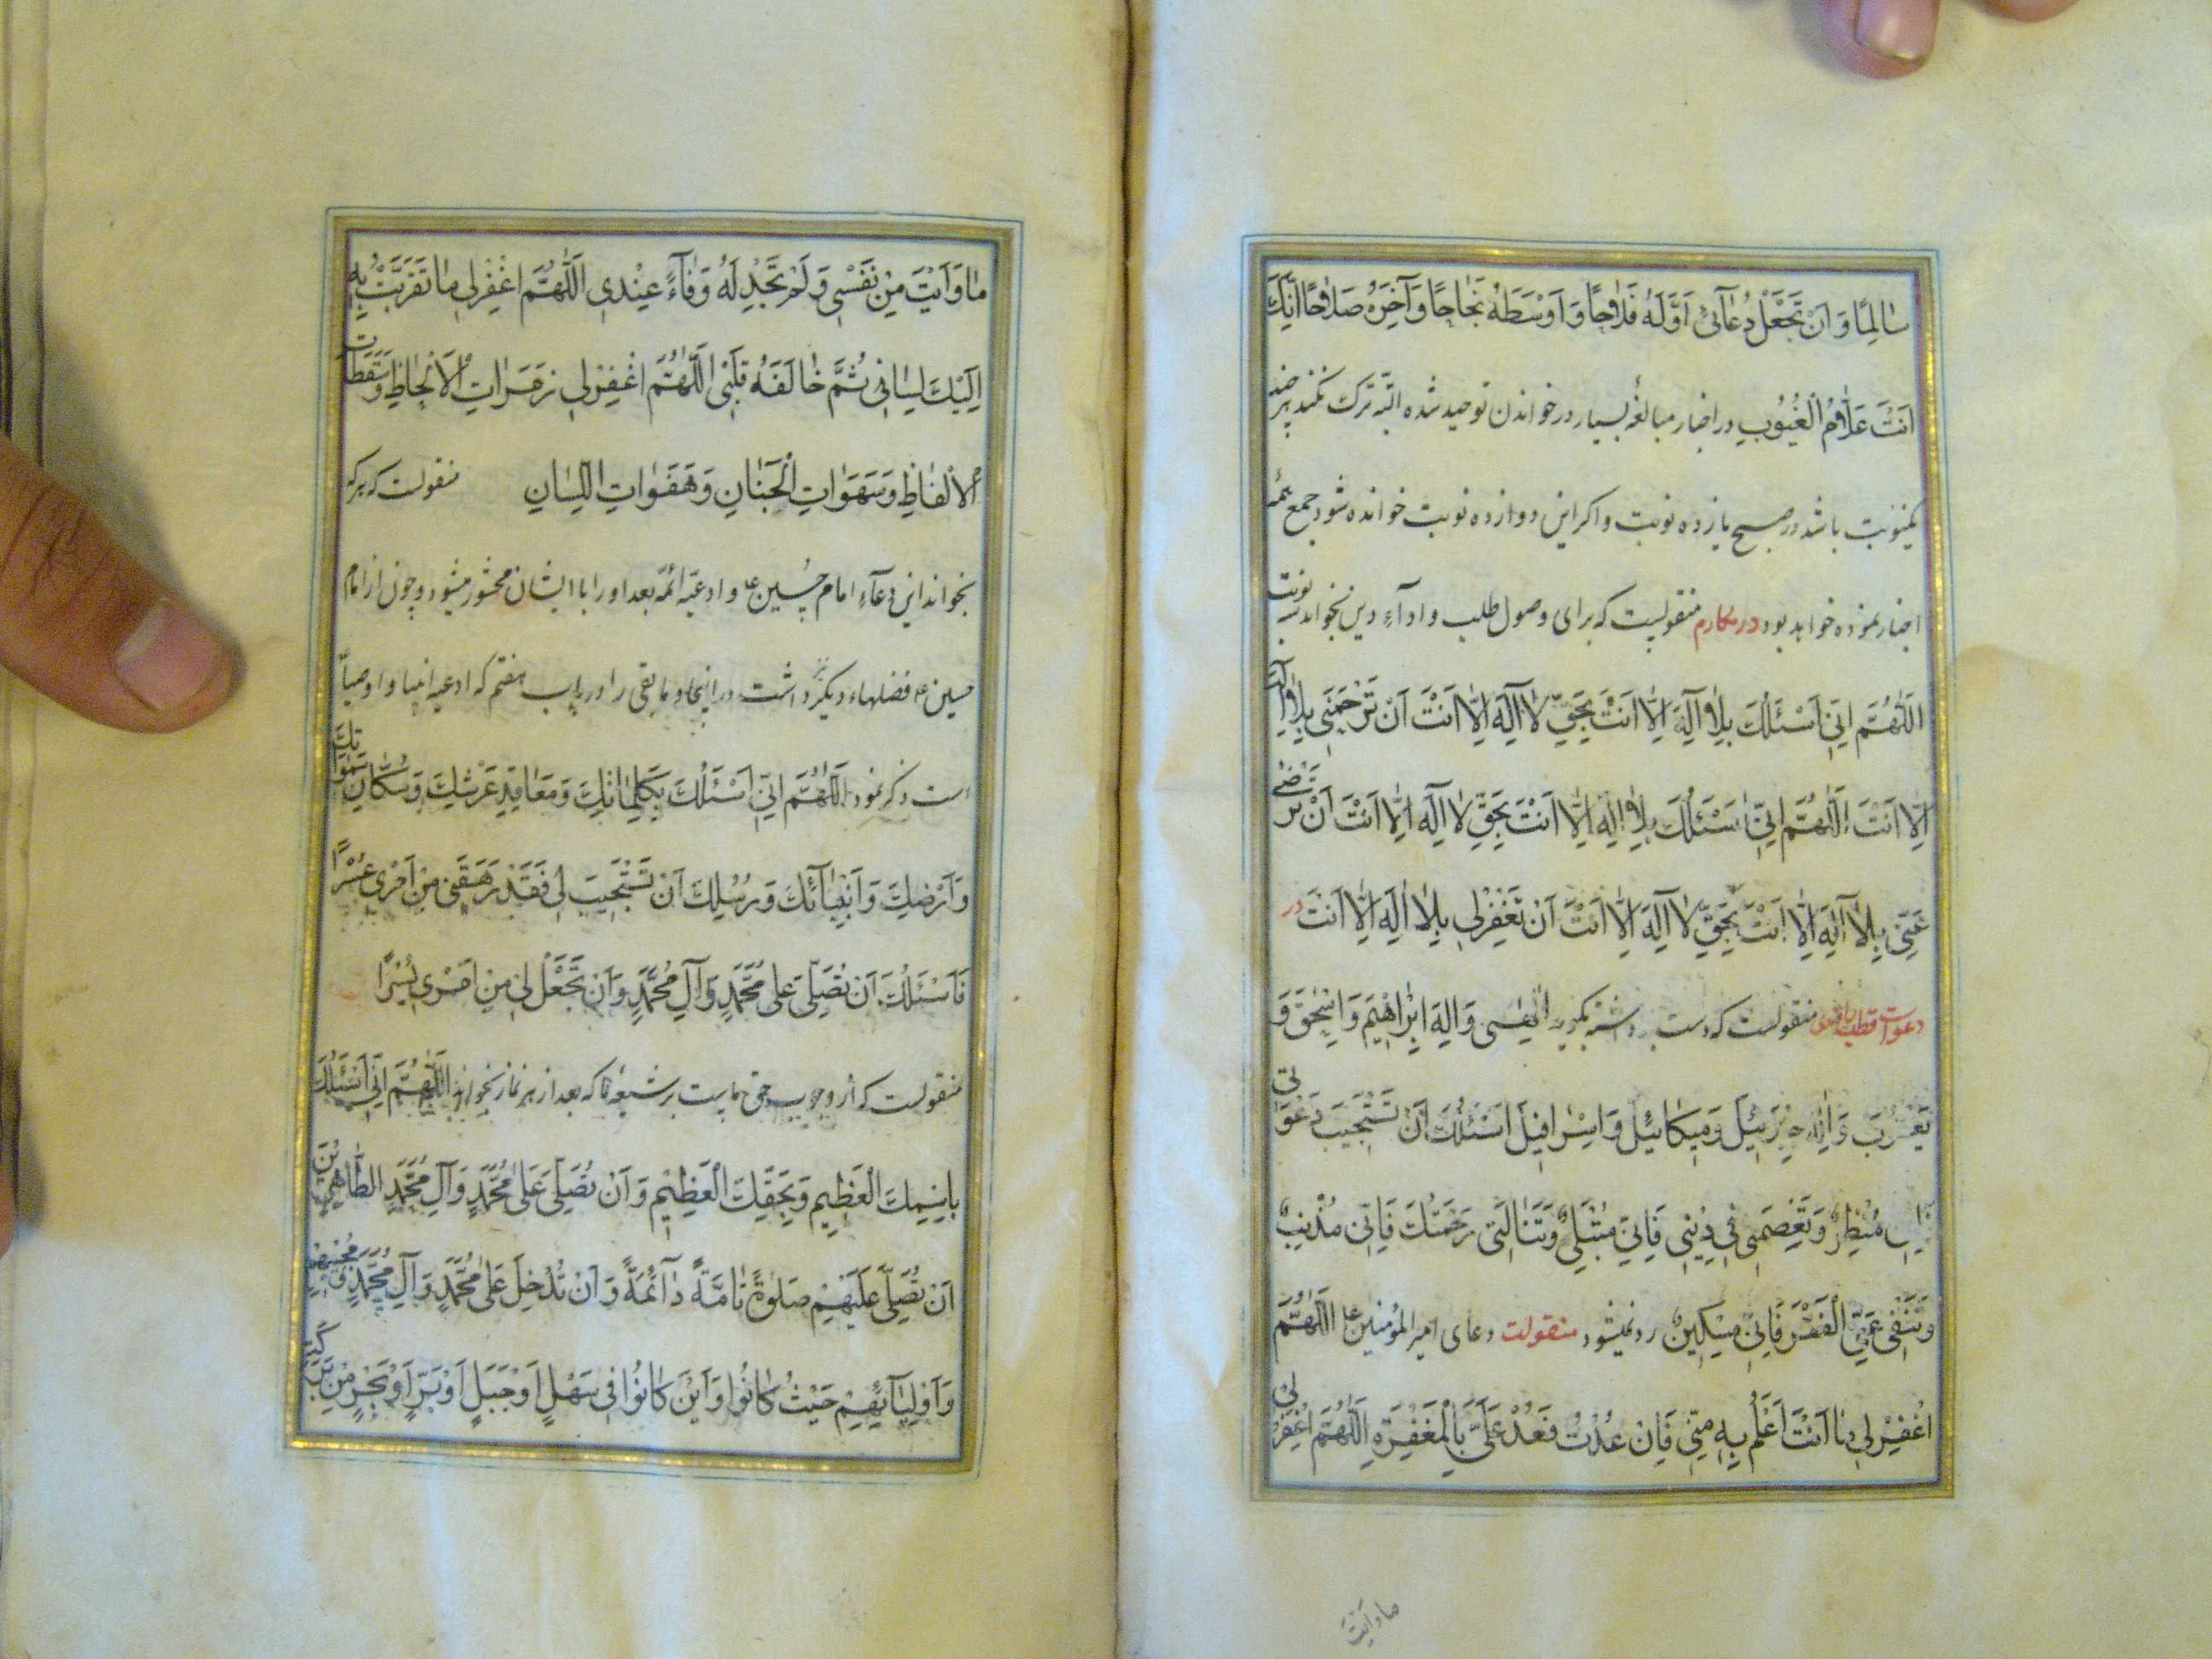 سٰالِمًا وَ اَنْ تَجْعَلَ دُعٰآئى اَوَّلَهُ فَلٰاحًا وَ اَوْسَطَهُ نَجٰاحًا وَ آخِرَهُ صَلٰاحًا اِنَّكَ
اَنْتَ عَلّٰامُ الْغُيُوبِ در اخبار مبالغهٔ بسیار در خواندن توحید شده البتّه ترک نکنید هر چند
یکنوبت باشد در صبح یازده نوبت و اکر این دوازده نوبت خوانده شود جمع همهٔ
اخبار نموده خواهد بود در مکارم منقولیست که برای وصول طلب و ادآءِ دین بخواند سه نوبت
اَللّٰهُمَّ اِنّى اَسْئَلُكَ بِلٰا اِلٰهَ اِلّٰا اَنْتَ بِحَقِّ لٰا اِلٰهَ اِلّٰا اَنْتَ اَنْ تَرْحَمَنى بِلٰا اِلٰهَ
اِلّٰا اَنْتَ اَللّٰهُمَّ اِنّى اَسْئَلُكَ بِلٰا اِلٰهَ اِلّٰا اَنْتَ بِحَقِّ لٰا اِلٰهَ اِلّٰا اَنْتَ اَنْ تَرْضٰى
عَنّى بِلٰا اِلٰهَ اِلّٰا اَنْتَ بِحَقِّ لٰا اِلٰهَ اِلّٰا اَنْتَ اَنْ تَغْفِرَ لى بِلٰا اِلٰهَ اِلّٰا اَنْتَ در
دعوات قطب منقولست که دست داشته بکوید الٰهى وَ اِلٰهَ اِبْرٰاهيمَ وَ اِسْحٰقَ وَ
يَعْقُوبَ وَ اِلٰهَ جِبْرَئيلَ وَ ميكٰائيلَ وَ اِسْرٰافيلَ اَسْئَلُكَ اَنْ تَسْتَجيبَ دَعْوَتى
وَ تَعْصِمَنى فى دينى فَاِنّى مُبْتَلىً وَ تَنٰالَنى رَحْمَتُكَ فَاِنّى مُذْنِبٌ
وَ تَنْفى عَنِّى الْفَقْرَ فَاِنّى مِسْكينٌ رد نمیشود منقولت دعای امیرالمؤمنین ع اَللّٰهُمَّ
اغْفِرْ لى مٰا اَنْتَ اَعْلَمُ بِهِ مِنّى فَاِنْ عُدْتُ فَعُدْ عَلَىَّ بِالْمَغْفِرَةِ اَللّٰهُمَّ اغْفِرْ لى
ما وایت
مٰا وَاَيْتُ مِنْ نَفْسى وَ لَمْ تَجِدْ لَهُ وَفٰآءً عِنْدى اَللّٰهُمَّ اغْفِرْ لى مٰا تَقَرَّبْتُ بِهِ
اِلَيْكَ لِسٰانى ثُمَّ خٰالَفَهُ قَلْبى اَللّٰهُمَّ اغْفِرْ لى رَمَزٰاتِ الْاَلْحٰاظِ وَ سَقَطٰاتِ
الْاَلْفٰاظِ وَ سَهَوٰاتِ الْجَنٰانِ وَ هَفَوٰاتِ اللِّسٰانِ منقولت که هر که
بخواند این دعآءِ امام حسین ع و ادعیهٔ ائمّه بعد او را با ایشان محشور میشود و چون از امام
حسین ع فضلهاء دیکر داشت در اینجا و مابقی را در باب هفتم که ادعیه انبیا و اوصیآ
است ذکر نمود اَللّٰهُمَّ اِنّى اَسْئَلُكَ بِكَلِمٰاتِكَ وَ مَعٰاقِدِ عَرْشِكَ وَ سُكّٰانِ سَمٰوٰاتِكَ
وَ اَرْضِكَ وَ اَنْبِيٰآئِكَ وَ رُسُلِكَ اَنْ تَسْتَجيبَ لى فَقَدْ رَهَقَنى مِنْ اَمْرى عُسْرًا
فَاَسْئَلُكَ اَنْ تُصَلِّىَ عَلىٰ مُحَمَّدٍ وَ آلِ مُحَمَّدٍ وَ اَنْ تَجْعَلَ لى مِنْ اَمْرى يُسْرًا
منقولست که از وجوب حق ماست بر شیعهٔ ما که بعد از هر نماز بخوانند اَللّٰهُمَّ اِنّى اَسْئَلُكَ
بِاسْمِكَ الْعَظيمِ وَ بِحَقِّكَ الْعَظيمِ وَ اَنْ تُصَلِّىَ عَلىٰ مُحَمَّدٍ وَ آلِ مُحَمَّدٍ الطّٰاهِرينَ
اَنْ تُصَلِّىَ عَلَيْهِمْ صَلٰوةً تٰامَّةً دٰآئِمَةً وَ اَنْ تُدْخِلَ عَلىٰ مُحَمَّدٍ وَ آلِ مُحَمَّدٍ وَ مُحِبّيهِمْ
وَ اَوْلِيٰآئِهِمْ حَيْثُ كٰانُوا وَ اَيْنَ كٰانُوا فى سَهْلٍ اَوْ جَبَلٍ اَوْ بَرٍّ اَوْ بَحْرٍ مِنْ بَرَكَةِ